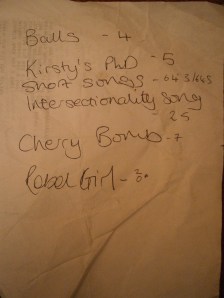 Balls - 4
Kirsty's PhD - 5
short songs -
Intersectionality song
25
Cherry Bomb - 7
Rebel Girl -